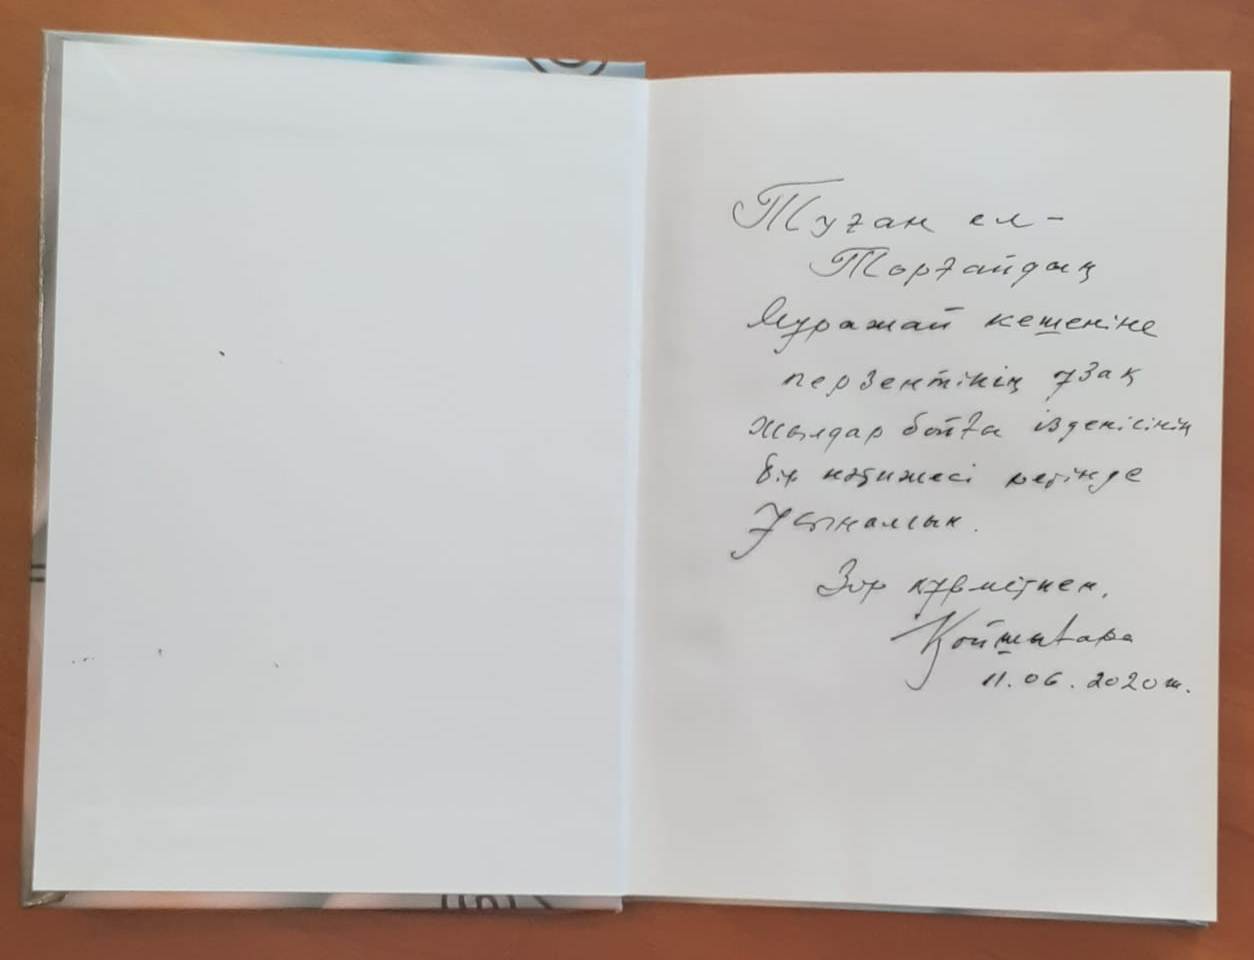 Туған ел-
Торғайдың
Мұражай кешеніне
перзентінің ұзақ
жылдар бойғы ізденісінің
бір нәтижесі ретінде
ұсыналсын.
Зор құрметпен,
Қойшығара
11.06.2020ж.